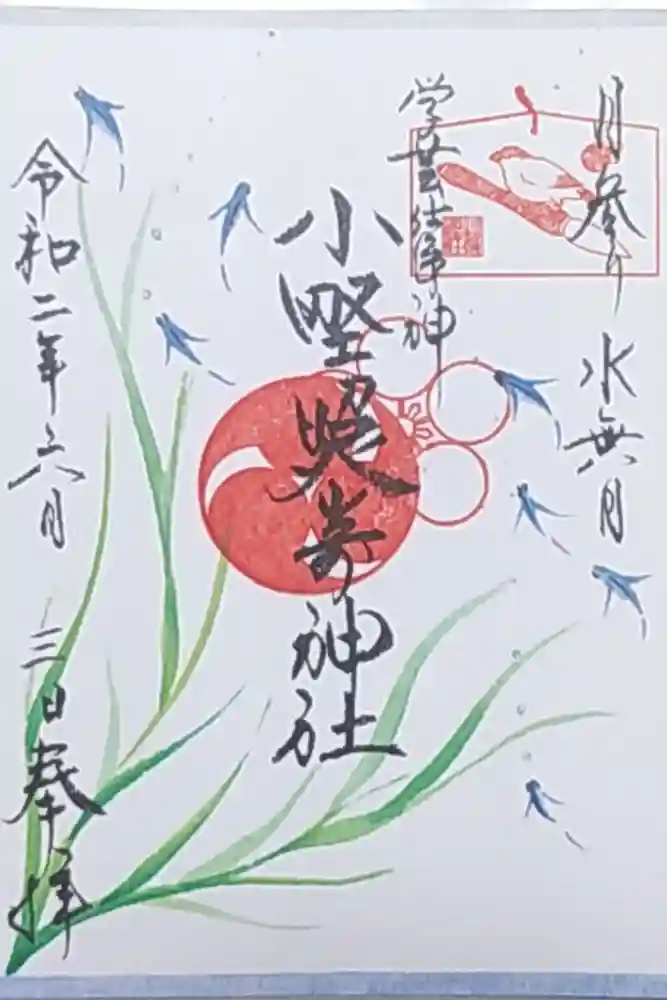 月参り 水無月
学芸仕事神
小野照嵜神社
令和二年六月 三日奉拝